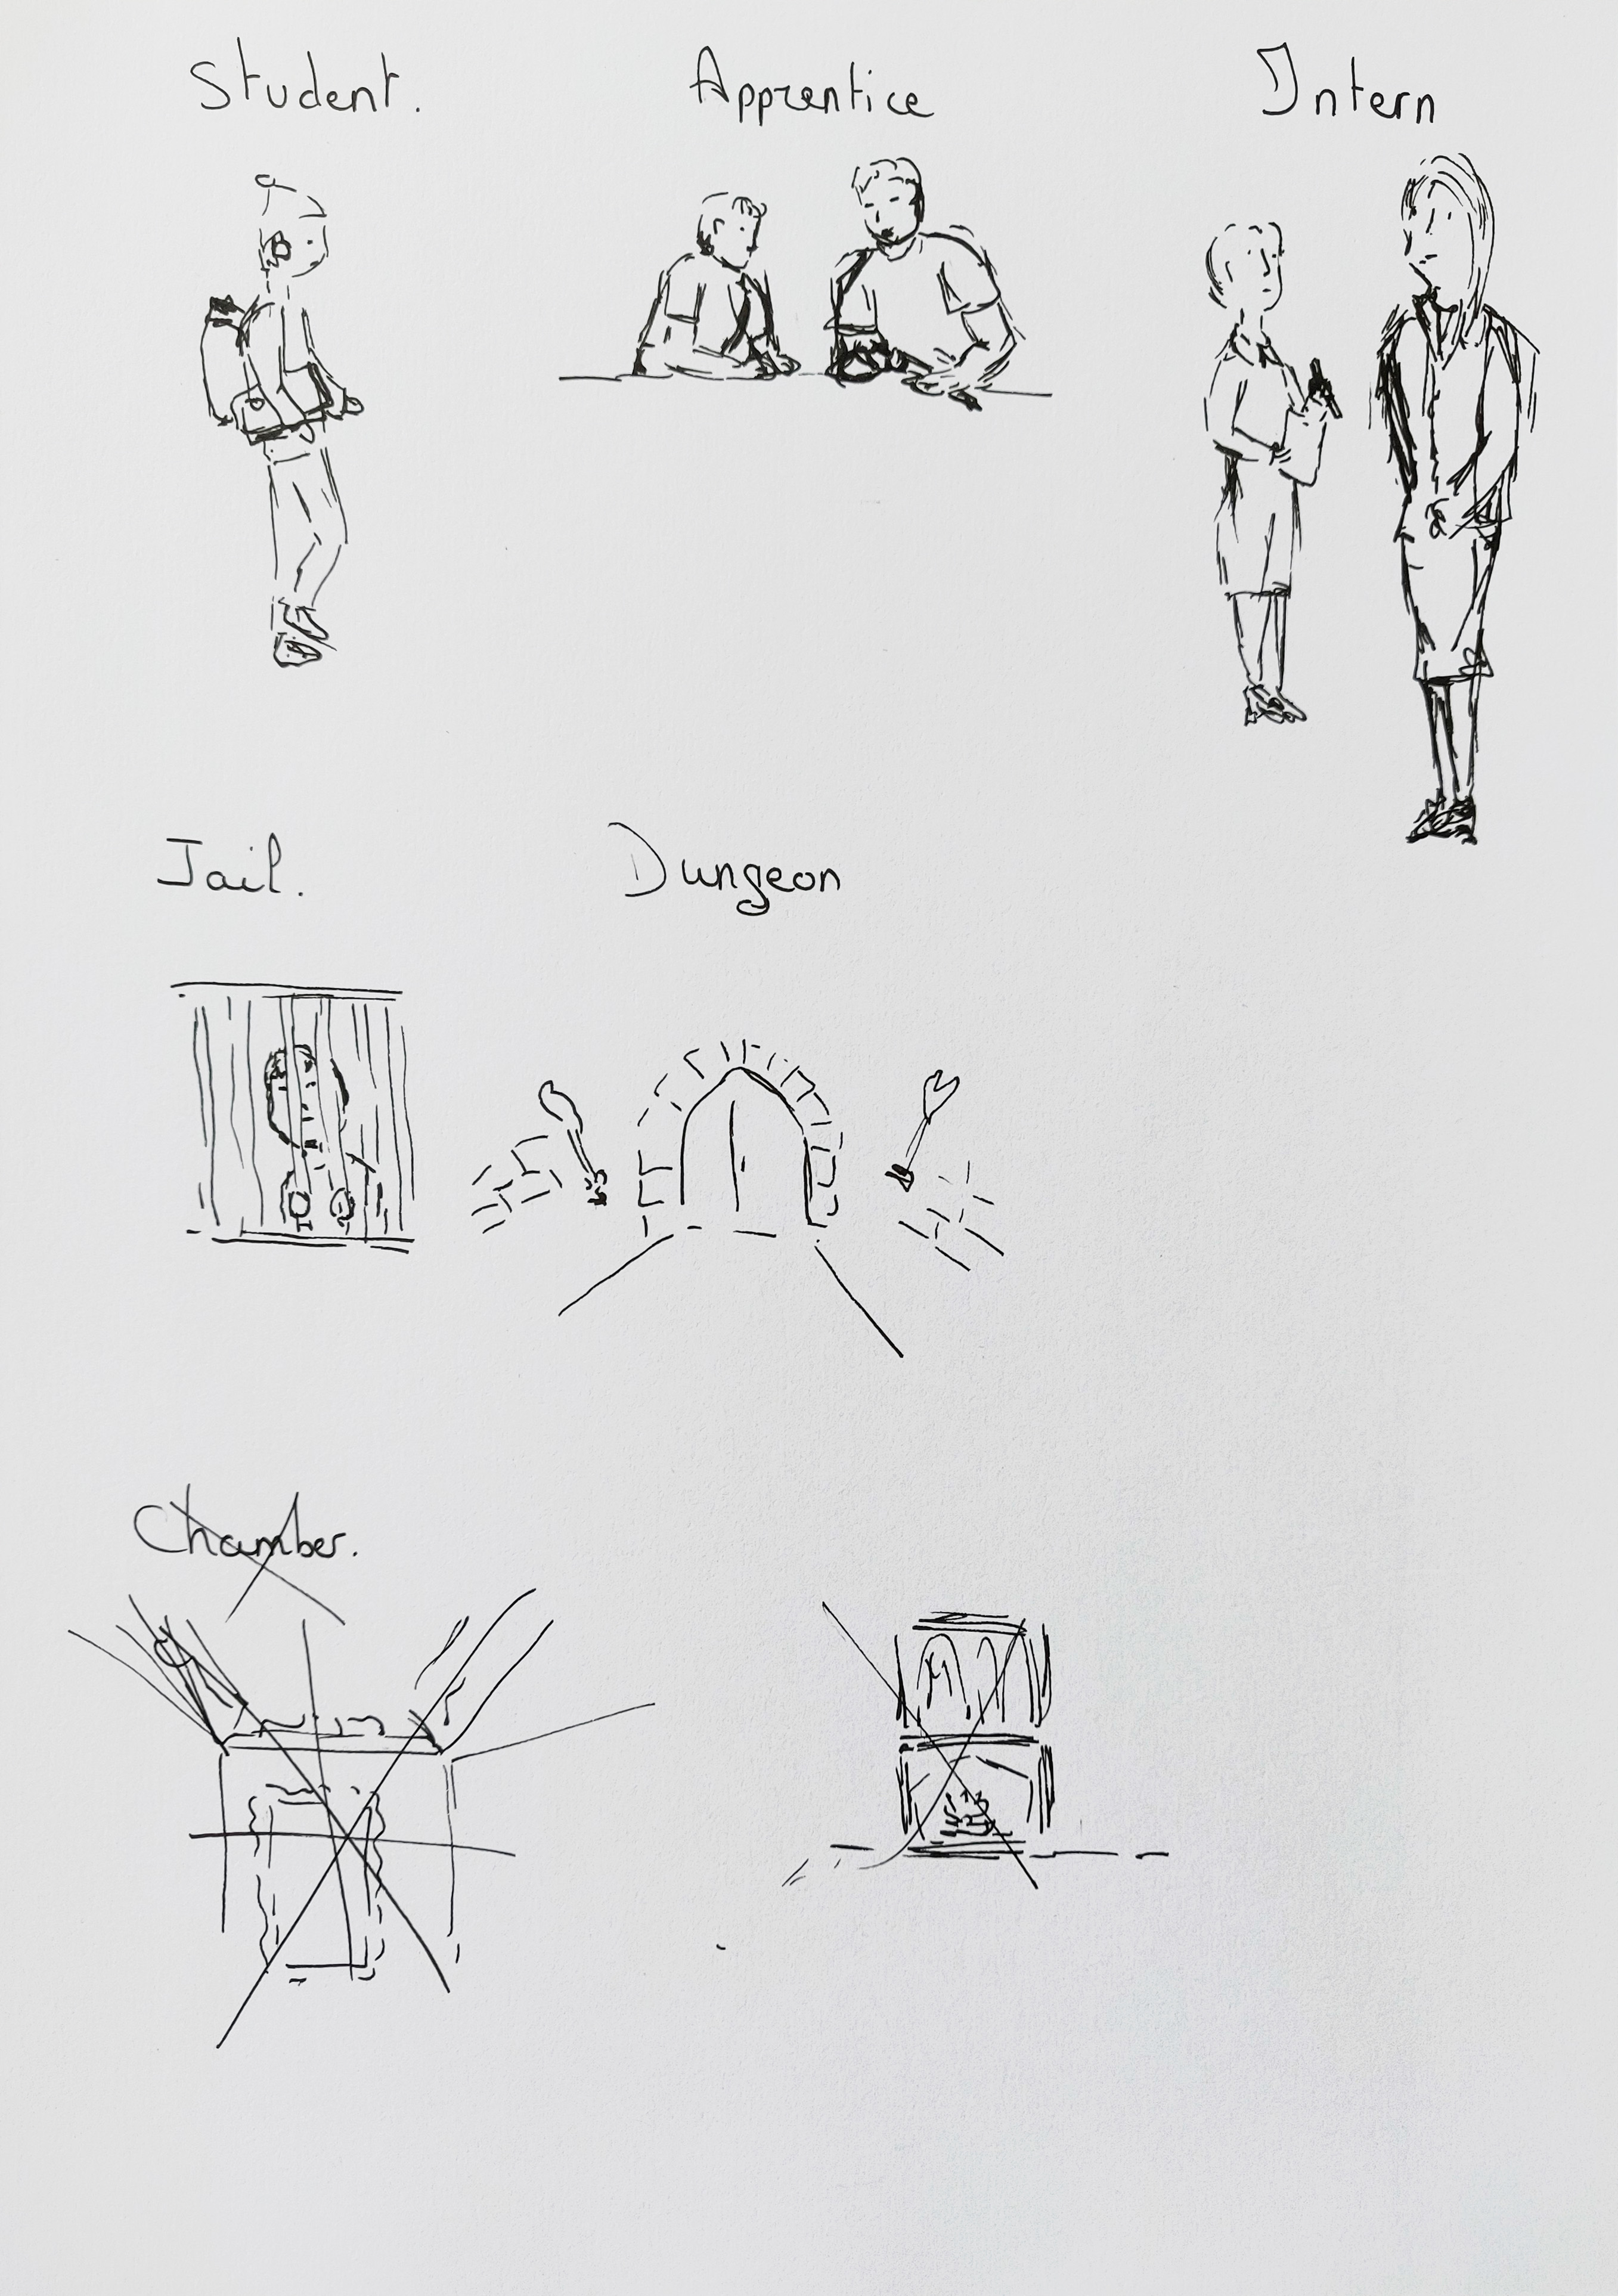 Student.
Apprentice
Intern
Jail.
Dungeon
Chamber.